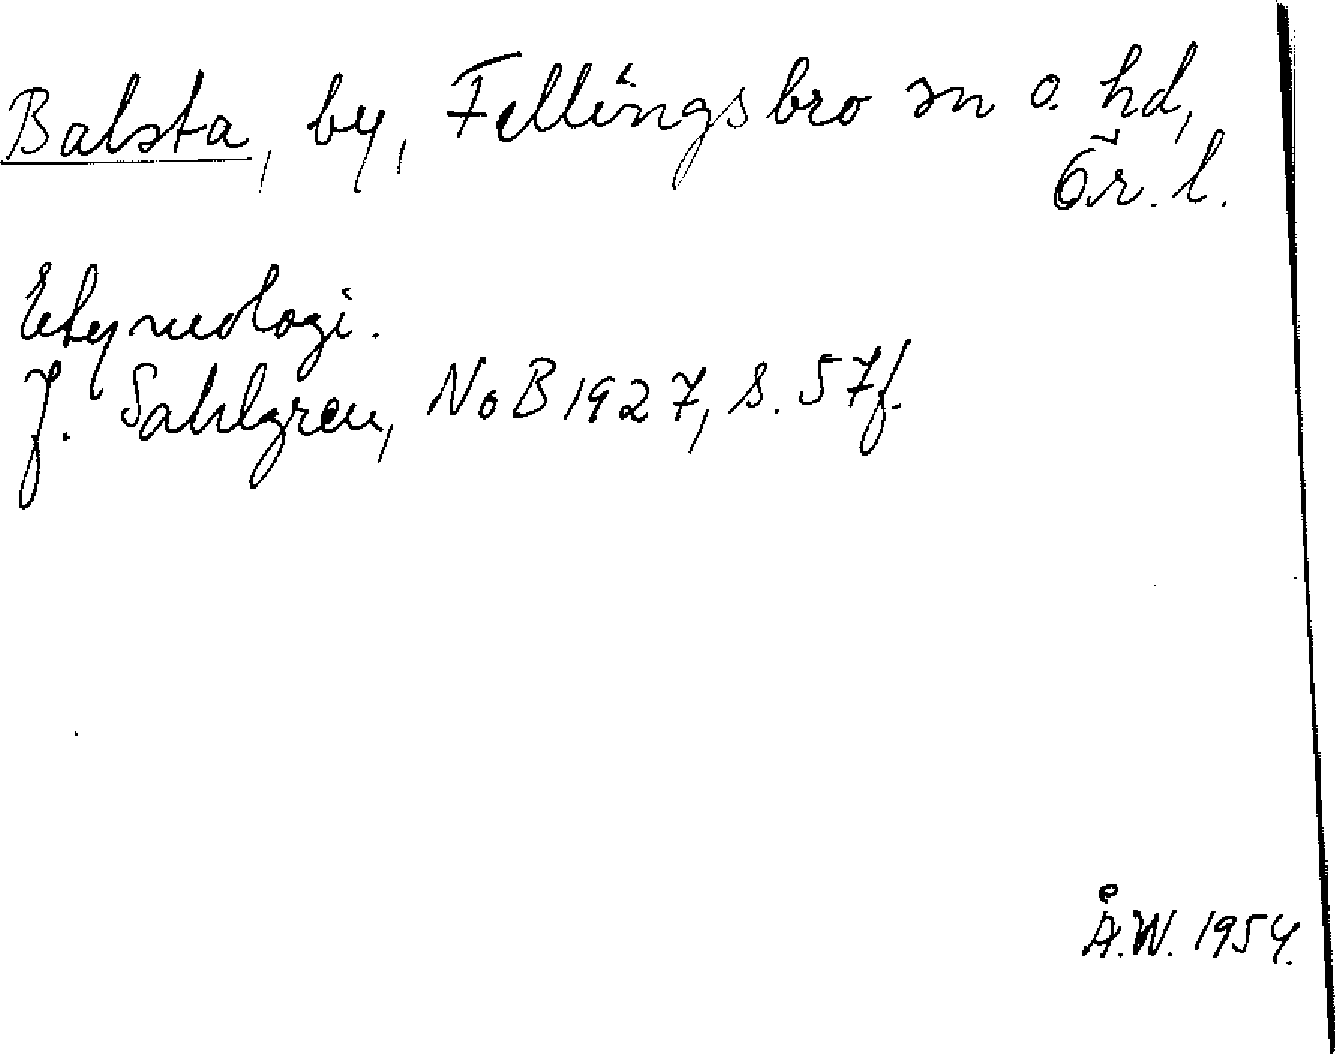 Balsta, by, Fellingsbro sn o. hd,
Ör. l.
Etymologi.
J. Sahlgren, NoB 1927, s. 57f.
Å.W. 1954.